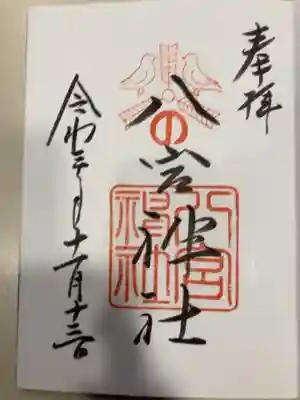 奉拝
八の宮神社
八宮
神社
令和三年十一月十三日